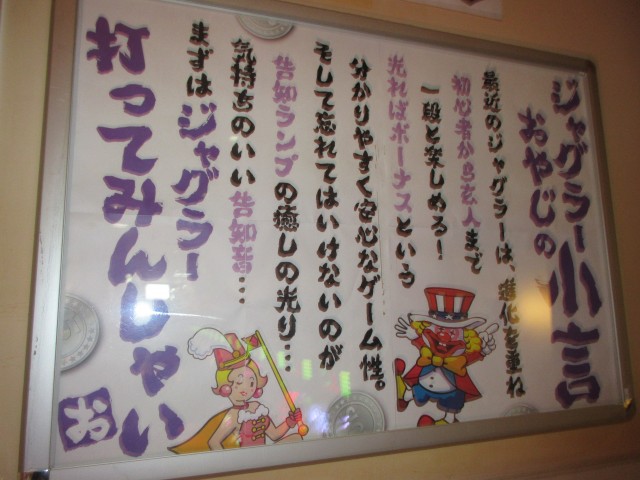 ジャグラー小言
おやじの
最近のジャグラーは、進化を重ね
初心者から玄人まで
一段と楽しめる!
光ればボーナスという
分かりやすく安心なゲーム性。
そして忘れてはいけないのが
告知ランプの癒しの光り…
気持ちのいい告知音…
まずはジャグラー
打ってみんしゃい
お